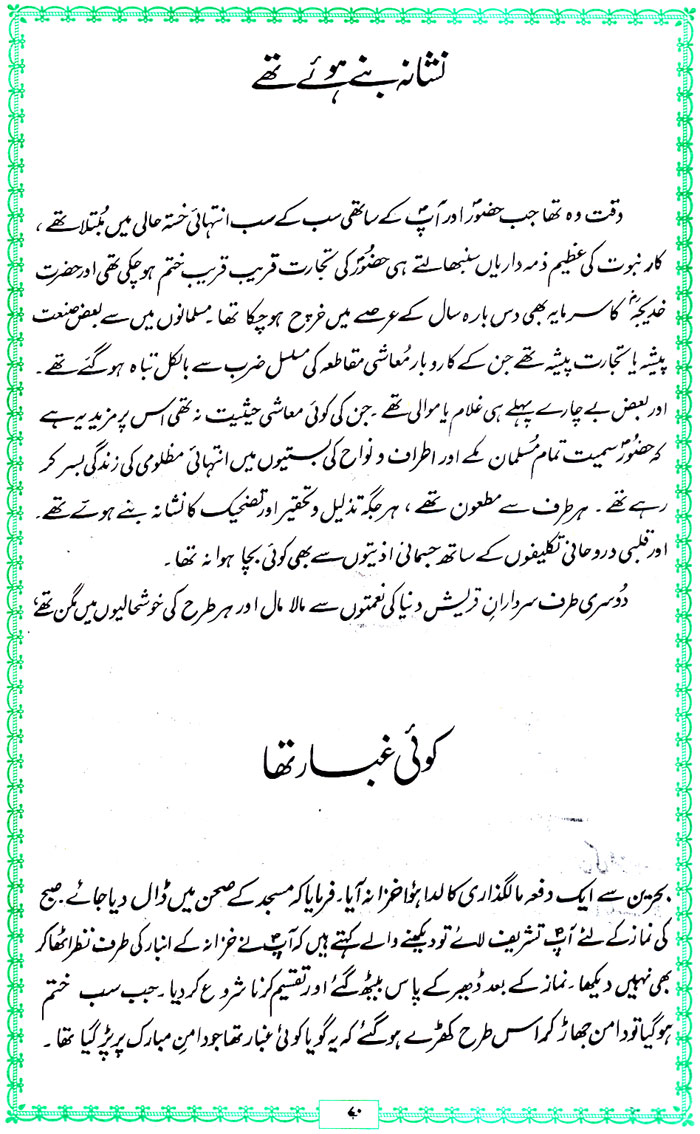 نشانہ بنے ہوئے تھے
وقت وہ تھا جب حضورؐ اور آپؐ کے ساتھی سب کے سب انتہائی خستہ حالی میں مُبتلا تھے ،
کارِ نبوت کی عظیم ذمہ داریاں سنبھالتے ہی حضورؐ کی تجارت قریب قریب ختم ہو چکی تھی اور حضرت
خدیجہؓ کا سرمایہ بھی دس بارہ سال کے عرصے میں خرچ ہو چکا تھا۔ مسلمانوں میں سے بعض صنعت
پیشہ یا تجارت پیشہ تھے جن کے کاروبار مُعاشی مقاطعہ کی مسلسل ضرب سے بالکل تباہ ہو گئے تھے ۔
اور بعض بے چارے پہلے ہی غلام یا موالی تھے ۔ جن کی کوئی معاشی حیثیت نہ تھی اس پر مزید یہ ہے
کہ حضورؐ سمیت تمام مُسلمان مکے اور اطراف و نواح کی بستیوں میں انتہائی مظلومی کی زندگی بسر کر
رہے تھے ۔ ہر طرف سے مطعون تھے ، ہر جگہ تذلیل و تحقیر اور تضحیک کا نشانہ بنے ہوئے تھے ۔
اور قلبی و روحانی تکلیفوں کے ساتھ جسمانی اذیتوں سے بھی کوئی بچا ہوا نہ تھا ۔
دُوسری طرف سردارانِ قریش دنیا کی نعمتوں سے مالا مال اور ہر طرح کی خوشحالیوں میں مگن تھے ،
کوئی غبار تھا
بحرین سے ایک دفعہ مالگذاری کا لدا ہوا خزانہ آیا۔ فرمایا کہ مسجد کے صحن میں ڈال دیا جائے ۔ صبح
کی نماز کے لئے آپؐ تشریف لائے تو دیکھنے والے کہتے ہیں کہ آپؐ نے خزانہ کے انبار کی طرف نظر اٹھا کر
بھی نہیں دیکھا ۔ نماز کے بعد ڈھیر کے پاس بیٹھ گئے اور تقسیم کرنا شروع کر دیا ۔ جب سب ختم
ہو گیا تو دامن جھاڑ کر اس طرح کھڑے ہو گئے کہ یہ گویا کوئی غبار تھا جو دامنِ مبارک پر پڑ گیا تھا ۔